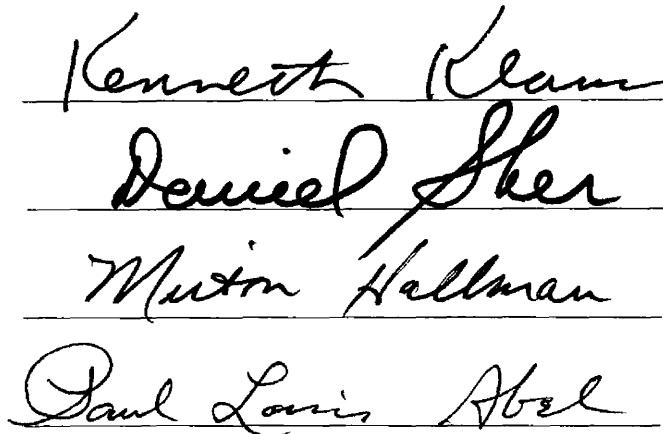 Kenneth Klaus
Daniel Sher
Milton Hallman
Paul Louis Abel